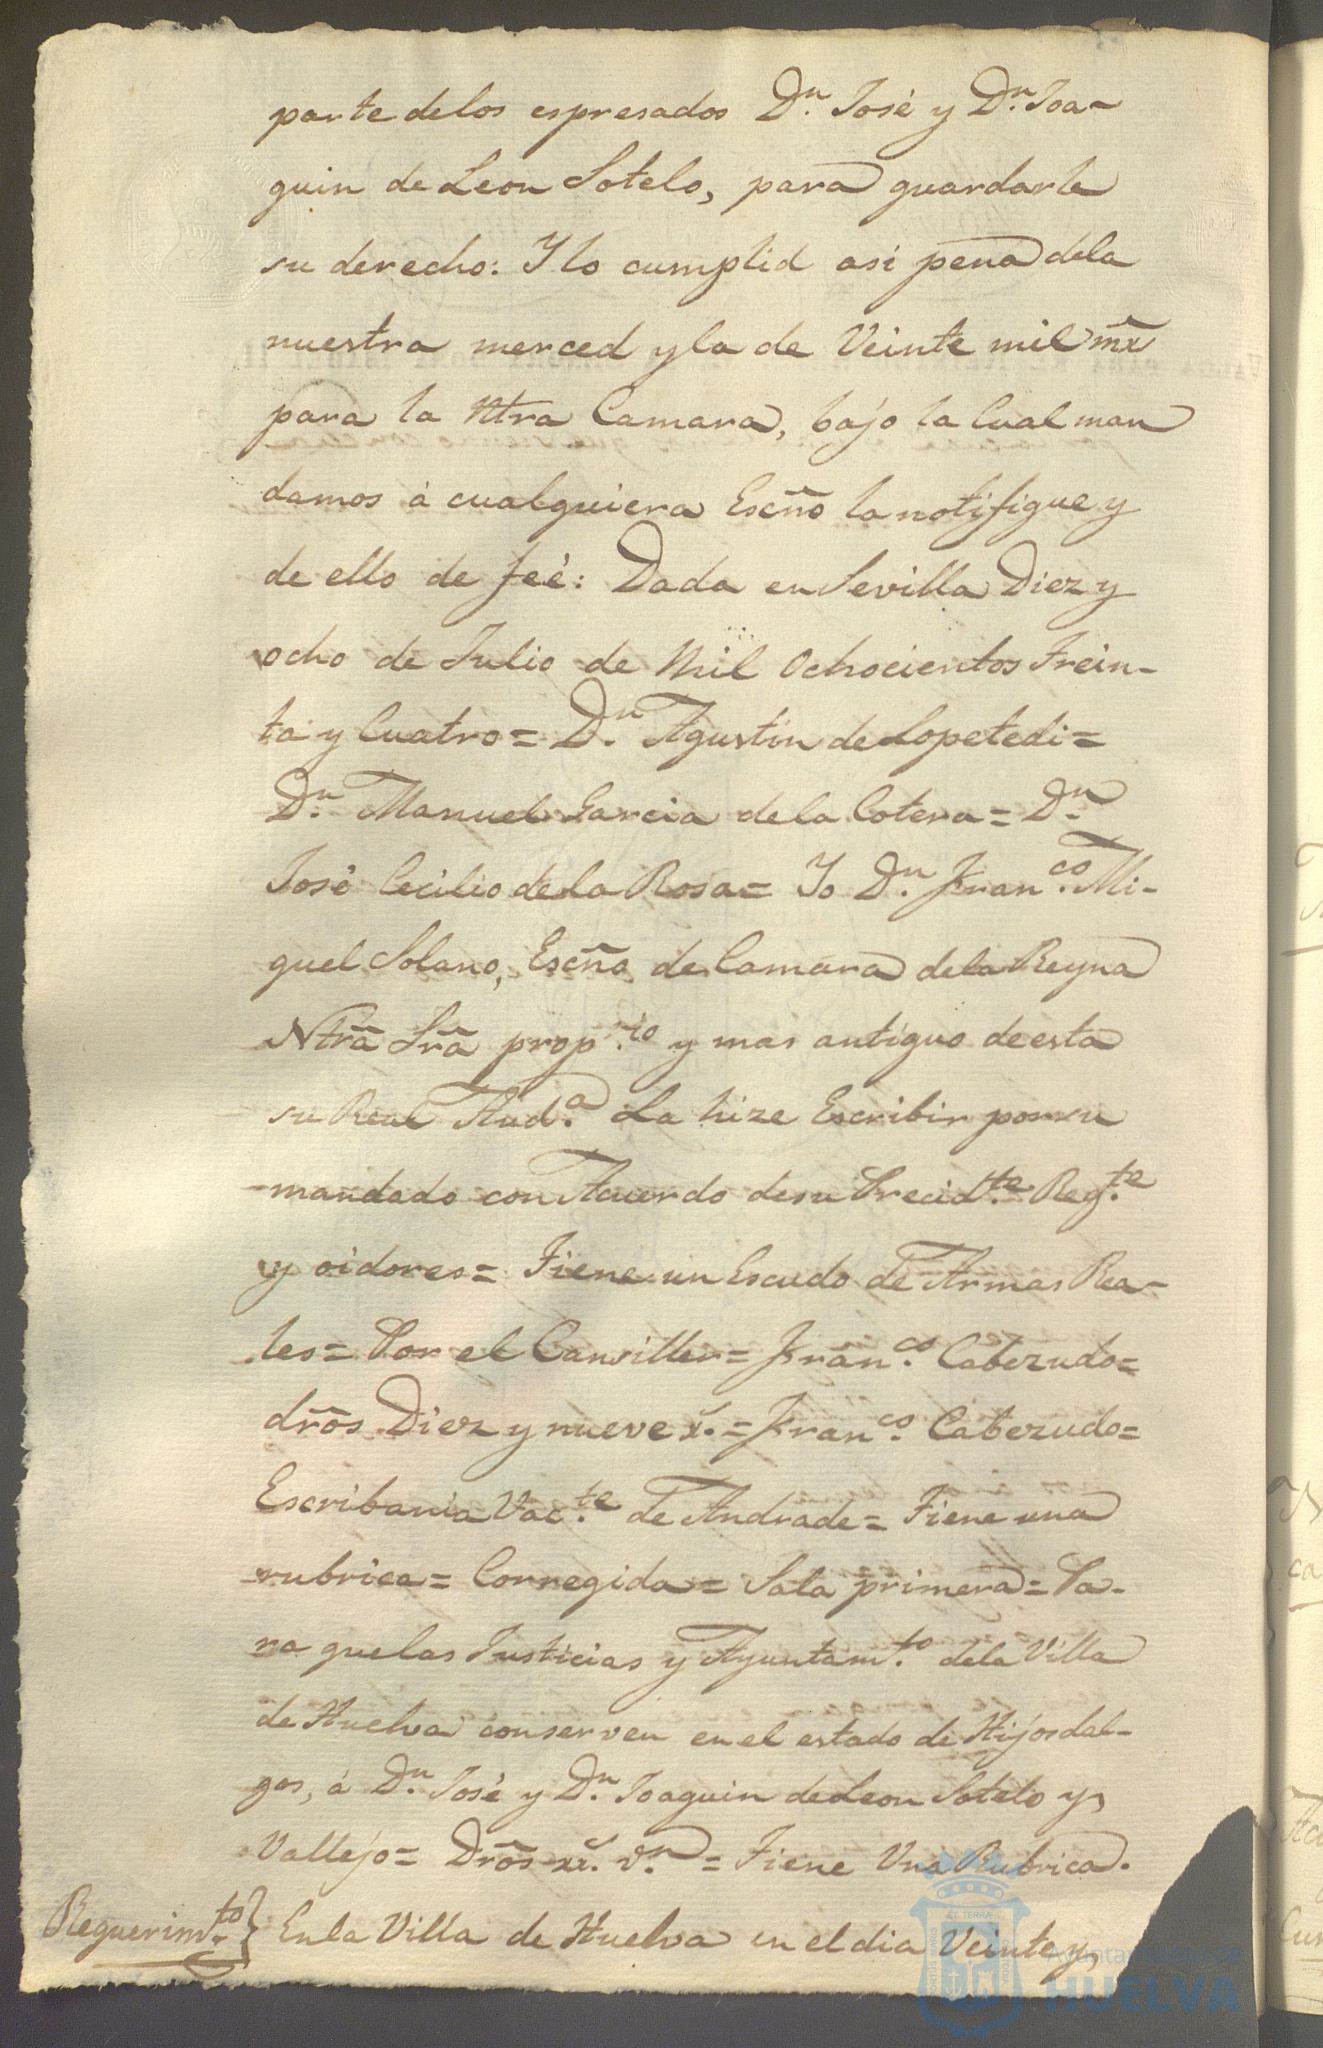 parte delos espresados Dn. José y Dn. Joa-
quin de Leon Sotelo, para guardarle
su derecho: Y lo cumplid asi pena dela
nuestra merced y la de Veinte mil mr̃s
para la Ntra Camara, bajo la Cual man
damos á cualquiera Escño la notifique y
de ello de feé: Dada en Sevilla Diez y
ocho de Julio de Mil Ochocientos Trein-
ta y Cuatro = Dn. Agustin de Lopetedi =
Dn. Manuel Garcia dela Cotera = Dn.
José Cecilio dela Rosa = Yo Dn. Franco. Mi-
guel Solano, Escño de Camara dela Reyna
Ntrã Srã proprio. y mas antiguo de esta
su Real Auda. La hize Escribir por su
mandado con Acuerdo desu Precidte. Regte.
y oidores = Tiene un Escudo de Armas Rea-
les = Por el Cansiller = Franco. Cabezudo =
drõs Diez y nueve r.s = Franco. Cabezudo =
Escribania Vacte. de Andrade = Tiene una
rubrica = Corregida = Sala primera = Pa-
ra que las Justicias y Ayuntamto. dela Villa
de Huelva conserven en el estado de Hijosdal-
gos, á Dn. José y Dn. Joaquin de Leon Sotelo y
Vallejo = Drõs = Tiene Una Rubrica.
Requerimto. } En la Villa de Huelva en el dia Veinte y
Ayuntamiento de
HUELVA